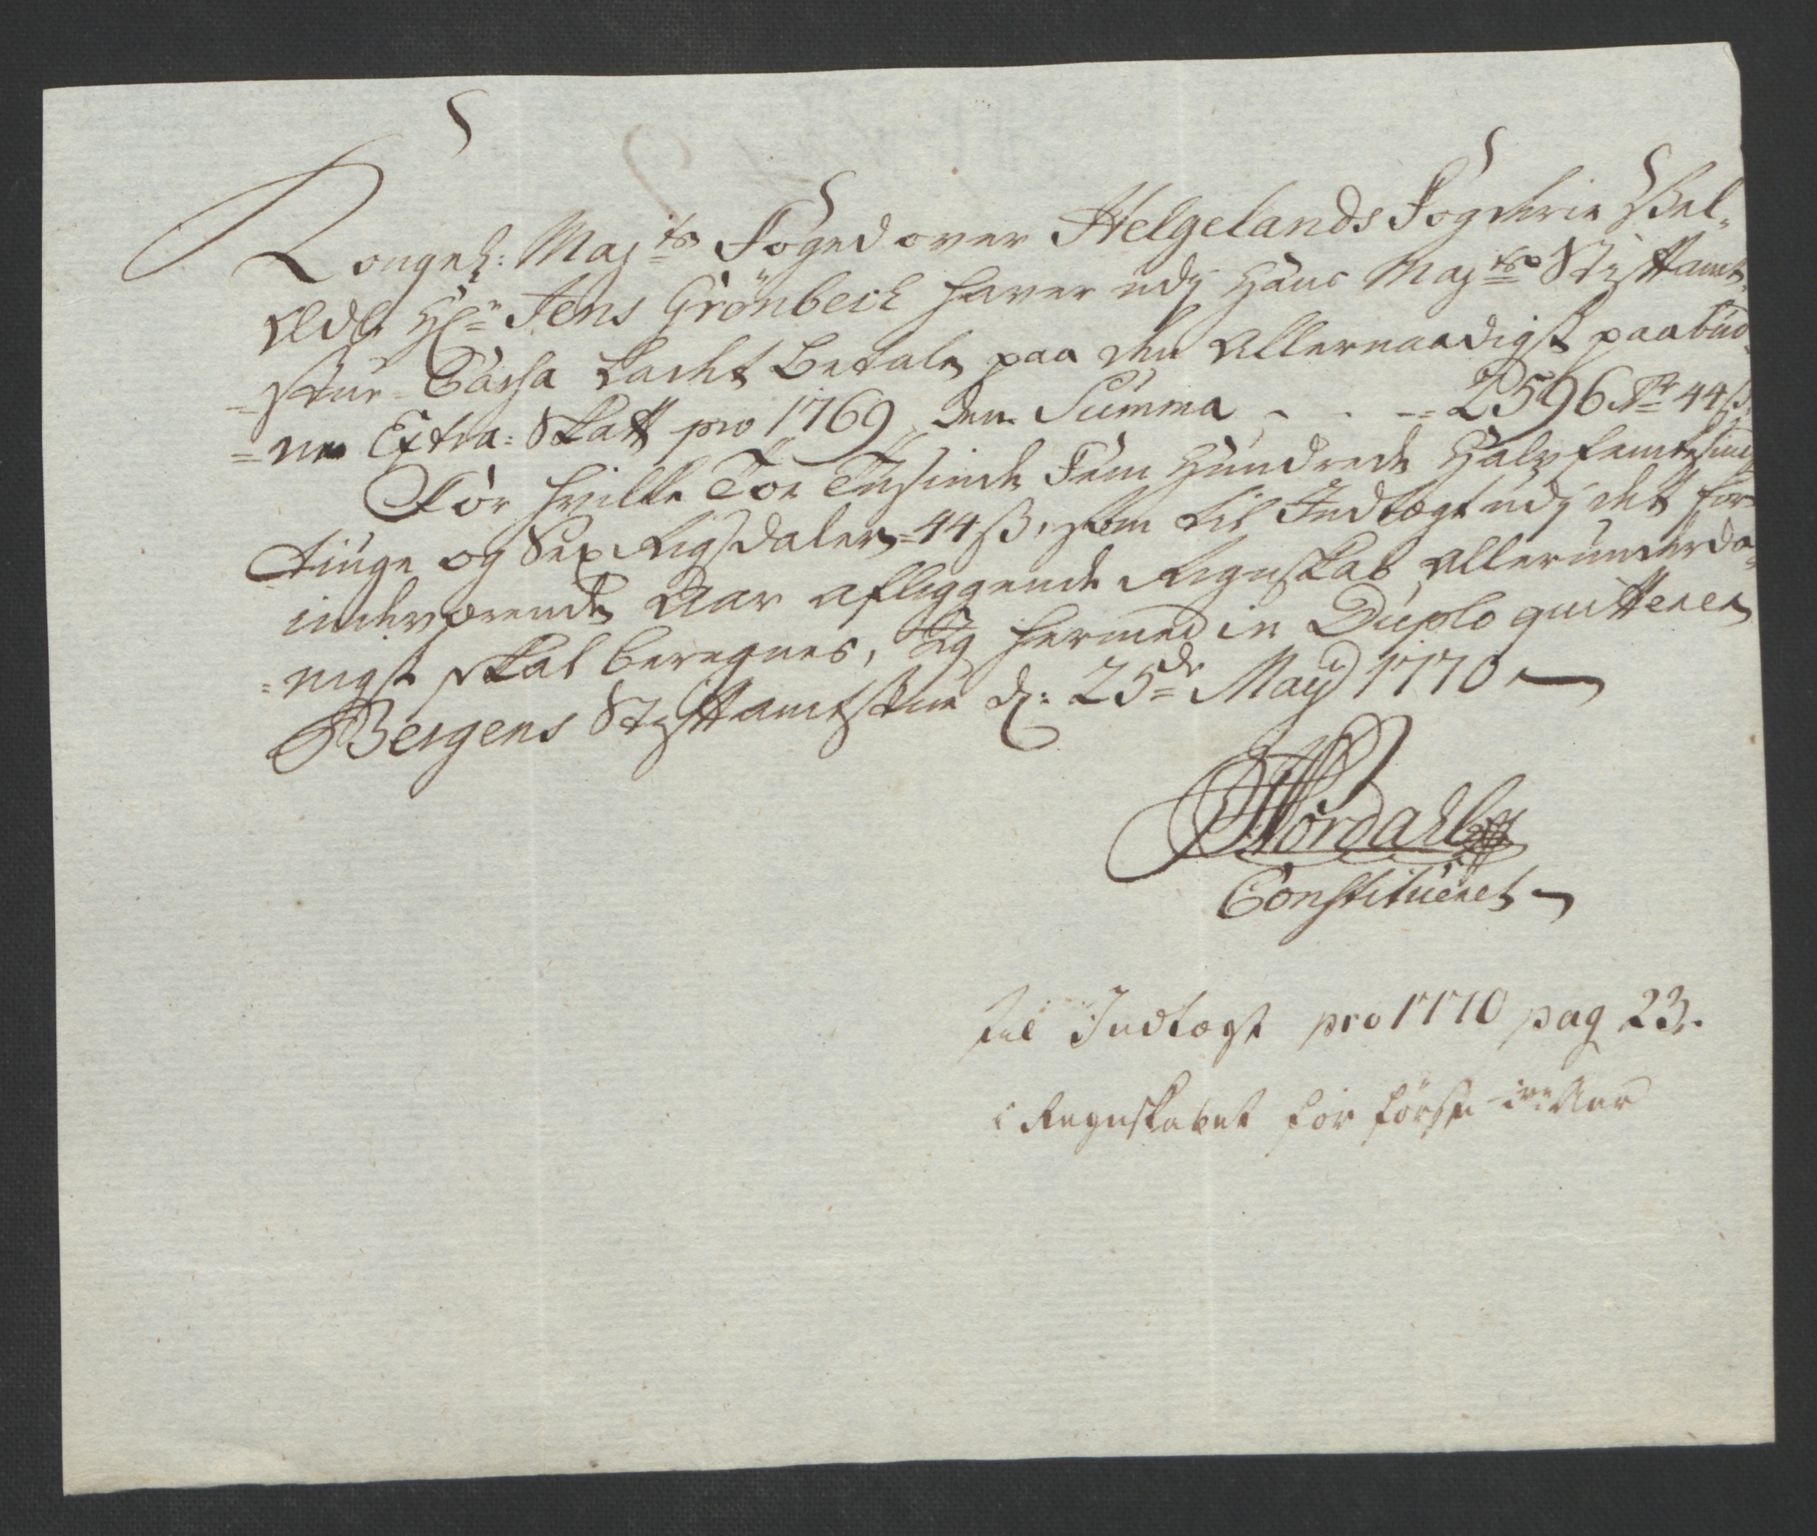 Kongel: Maj:ts Foged over Helgelands Fogderie Vel-
ædle Hr: Jens Grönbech haver udj Hans Maj:ts Stiftamt-
=stue Cassa ladet betale paa den Allernaadigst paabud-
=ne Extra-Skatt pro 1769 den Summa - - - 2596 Rdr 44 ß.
For hvilke Toe Tusinde Fem Hundrede Halvfemtesinds
tiuge og Sex Rigsdaler 44 ß, som til Indtægt udj det for
indeværende Aar aflæggende Regnskab Allerunderda-
=nigst skal beregnes, og hermed in Duplo quitteres
Bergens Stiftamtstue d: 25de Maij 1770
Nordahl
Constitueret
til Indtægt pro 1770 pag 23.
i Regnskabet for første Aar